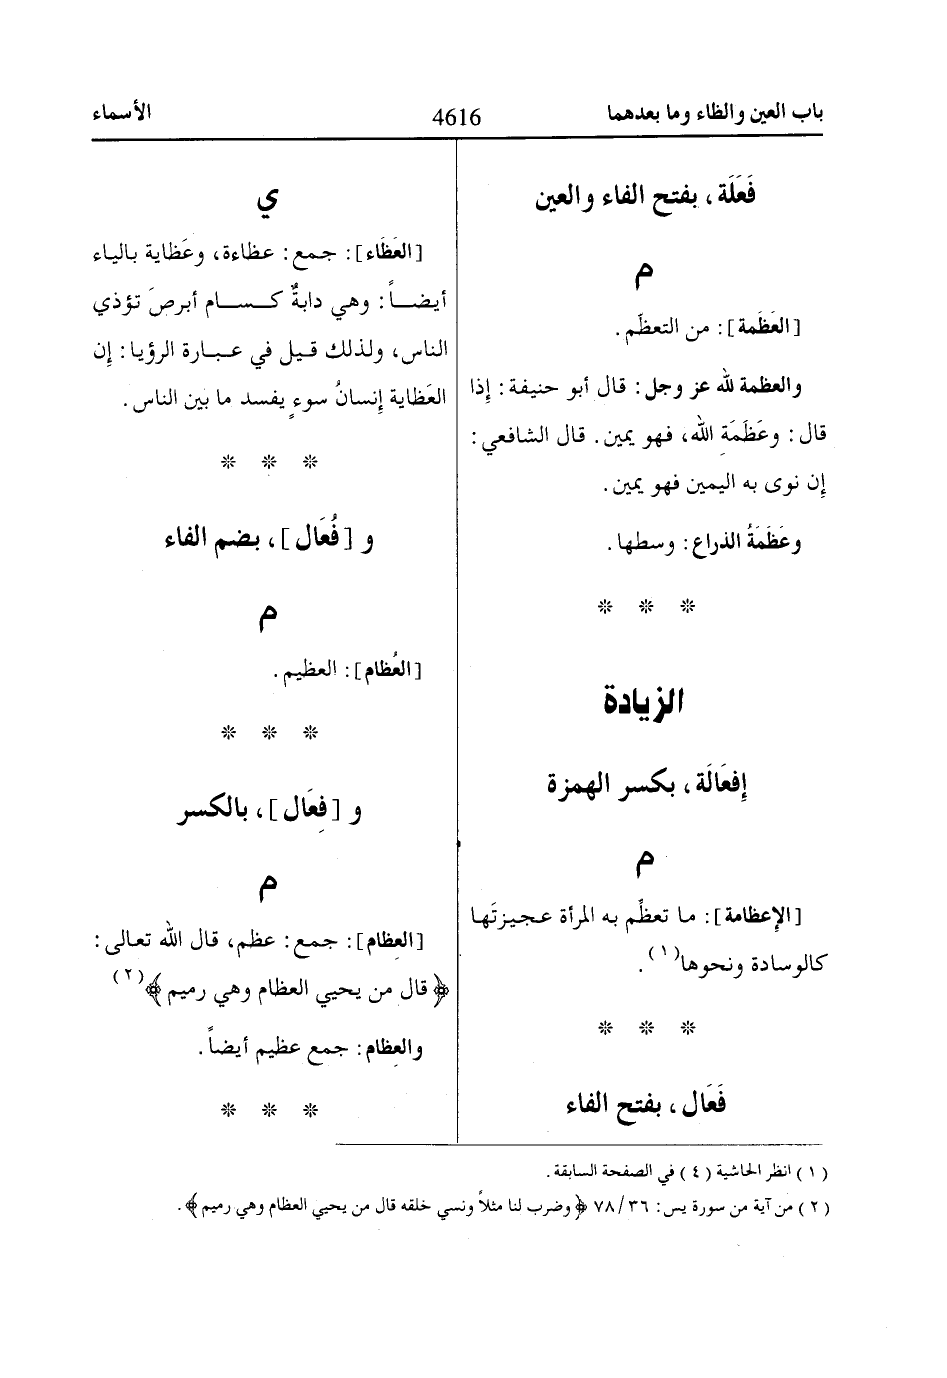 باب العين والظاء وما بعدهما
4616
الأسماء
فَعَلَة، بفتح الفاء والعين
م
[العَظَمة]: من التعظّم.
والعظمة لله عز وجل: قال أبو حنيفة: إذا
قال: وعَظَمَةِ الله، فهو يمين. قال الشافعي:
إن نوى به اليمين فهو يمين.
وعَظَمَةُ الذراع: وسطها.
* * *
الزيادة
إفعَالَة، بكسر الهمزة
م
[الإعظامة]: ما تعظِّم به المرأة عجيزتَها
كالوسادة ونحوها(١).
* * *
فَعَال، بفتح الفاء
ي
[العَظَاء]: جمع: عظاءة، وعَظاية بالياء
أيضاً: وهي دابةٌ كسام أبرصَ تؤذي
الناس، ولذلك قيل في عبارة الرؤيا: إن
العَظاية إنسانُ سوءٍ يفسد ما بين الناس.
* * *
و [فُعَال]، بضم الفاء
م
[العُظام]: العظيم.
* * *
و [فِعَال]، بالكسر
م
[العِظام]: جمع: عظم، قال الله تعالى:
﴿قال من يحيي العظام وهي رميم﴾(٢)
والعِظام: جمع عظيم أيضاً.
* * *
(١) انظر الحاشية (٤) في الصفحة السابقة.
(٢) من آية من سورة يس: ٣٦/٧٨ ﴿وضرب لنا مثلاً ونسي خلقه قال من يحيي العظام وهي رميم﴾.